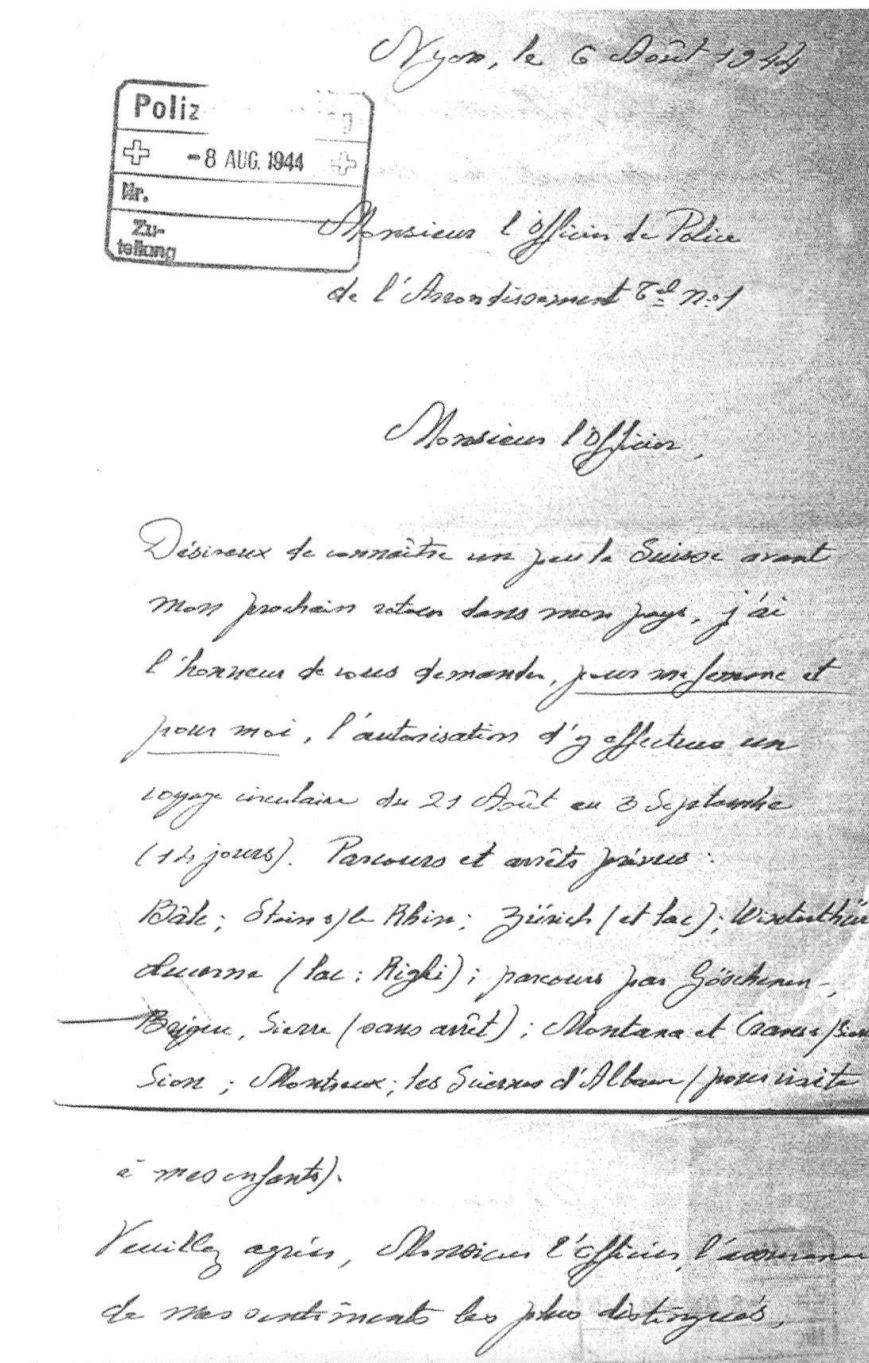 Nyon, le 6 Août 1944
Poliz g
- 8 AUG. 1944
Nr.
Zu-
teilung
Monsieur l'Officier de Police
de l'Arrondissement Tal No 1
Monsieur l'Officier,
Désireux de connaître un peu la Suisse avant
mon prochain retour dans mon pays, j'ai
l'honneur de vous demander, pour ma femme et
pour moi, l'autorisation d'y effectuer un
voyage circulaire du 21 Août au 3 Septembre
(14 jours). Parcours et arrêts prévus :
Bâle ; Stein s/le Rhin ; Zürich (et lac) ; Winterthür
Lucerne (lac ; Righi) ; parcours par Göschenen -,
Brigue, Sierre (sans arrêt) ; Montana et Crans s/Sierre
Sion ; Montreux ; les (pour visite
à mes enfants).
Veuillez agréer, Monsieur l'Officier, l'assurance
de mes sentiments les plus distingués,